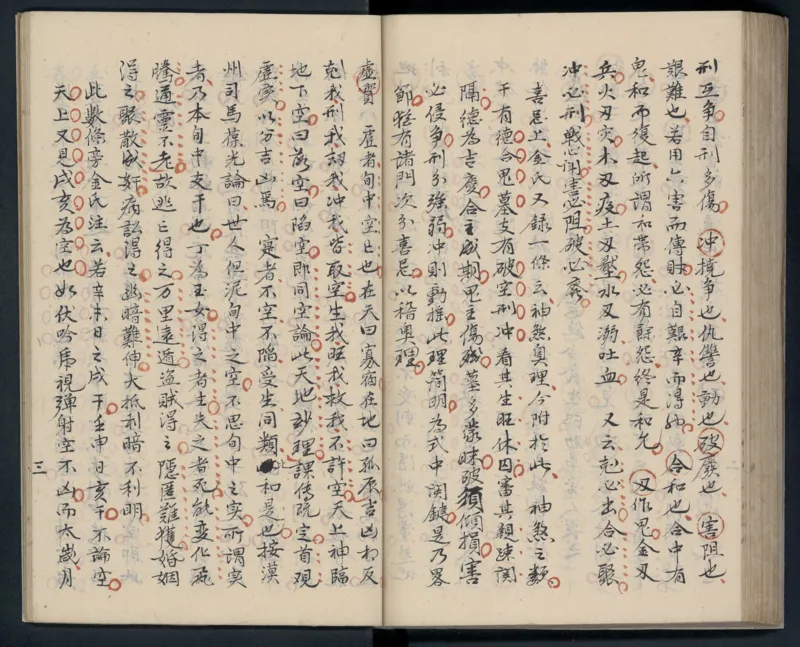 刑互争自刑多傷　冲撓争也仇讐也動也破廢也　害阻也
艱難也若用六害而傳財必自艱辛而得外　合和也合中有
鬼和而復起所謂和常怨必有餘怨終是和允　刃作鬼金刃
兵火刃灾木刃疫土刃塟水刃溺吐血　又云尅必出合必聚
冲必刑戰必鬪害必阻破必廢
喜忌上金氏又録一條云神煞奥理今附於此　神煞之類
干有德合鬼墓支有破空刑冲看其生旺休囚審其親疎関
隔德為吉慶合主成期鬼主傷殘墓多蒙昧破須傾損害
必侵争刑分強弱冲則動搖此理簡明為式中関鍵是乃畧
節雖有諸門次分喜忌以稽奥理
虚實　虚者旬中空亡也在天曰寡宿在地曰孤辰吉凶相反
尅我刑我刼我冲我皆取空生我旺我救我不許空天上神臨
地下空曰落空曰陷空即同空論此天地玅理課傳既定首观
虚實以分吉凶焉　寔者不空不陷受生同類比和是也按漠
州司馬葆光論曰世人但泥旬中之空不思旬中之实所謂实
者乃本旬中支干也丁為玉女得之者生失之者死能变化飛
騰通靈不老故逃亡得之万里遠遁盗賊得之隱匿難獲婚姻
得之聚散成奸病訟得之幽暗難伸大抵利暗不利明
此數條旁金氏注云若辛未日之戍干壬申日亥干不論空
天上又見戍亥為空也如伏吟虎視弹射空不凶而太歲月
三